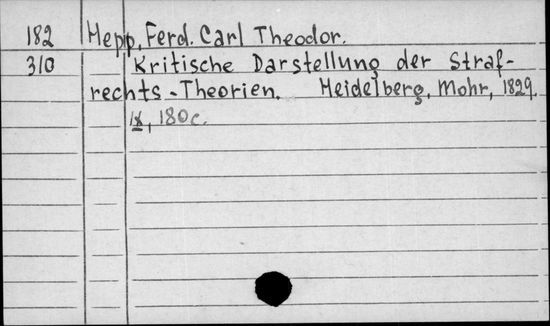 182 Hepp, Ferd. Carl Theodor.
310 Kritische Darstellung der Straf-
rechts-Theorien. Heidelberg, Mohr, 1829.
IX, 180 c.